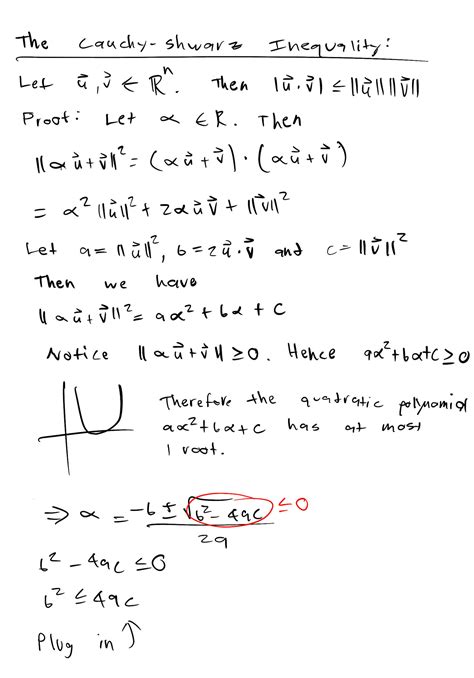 The Cauchy-shwarz Inequality:
Let u⃗, v⃗ ∈ ℝⁿ. Then |u⃗·v⃗| ≤ ||u⃗|| ||v⃗||
Proof: Let α ∈ R. Then
||αu⃗+v⃗||² = (αu⃗+v⃗)·(αu⃗+v⃗)
= α²||u⃗||² + 2αu⃗v⃗ + ||v⃗||²
Let a=||u⃗||², b=2u⃗·v⃗ and c=||v⃗||²
Then we have
||αu⃗+v⃗||² = aα²+bα+c
Notice ||αu⃗+v⃗|| ≥0. Hence aα²+bα+c≥0
Therefore the quadratic polynomial
aα²+bα+c has at most
1 root.
⇒ α = (-b ± √(b²-4ac))/2a ≤0
b²-4ac ≤0
b² ≤4ac
Plug in ↑